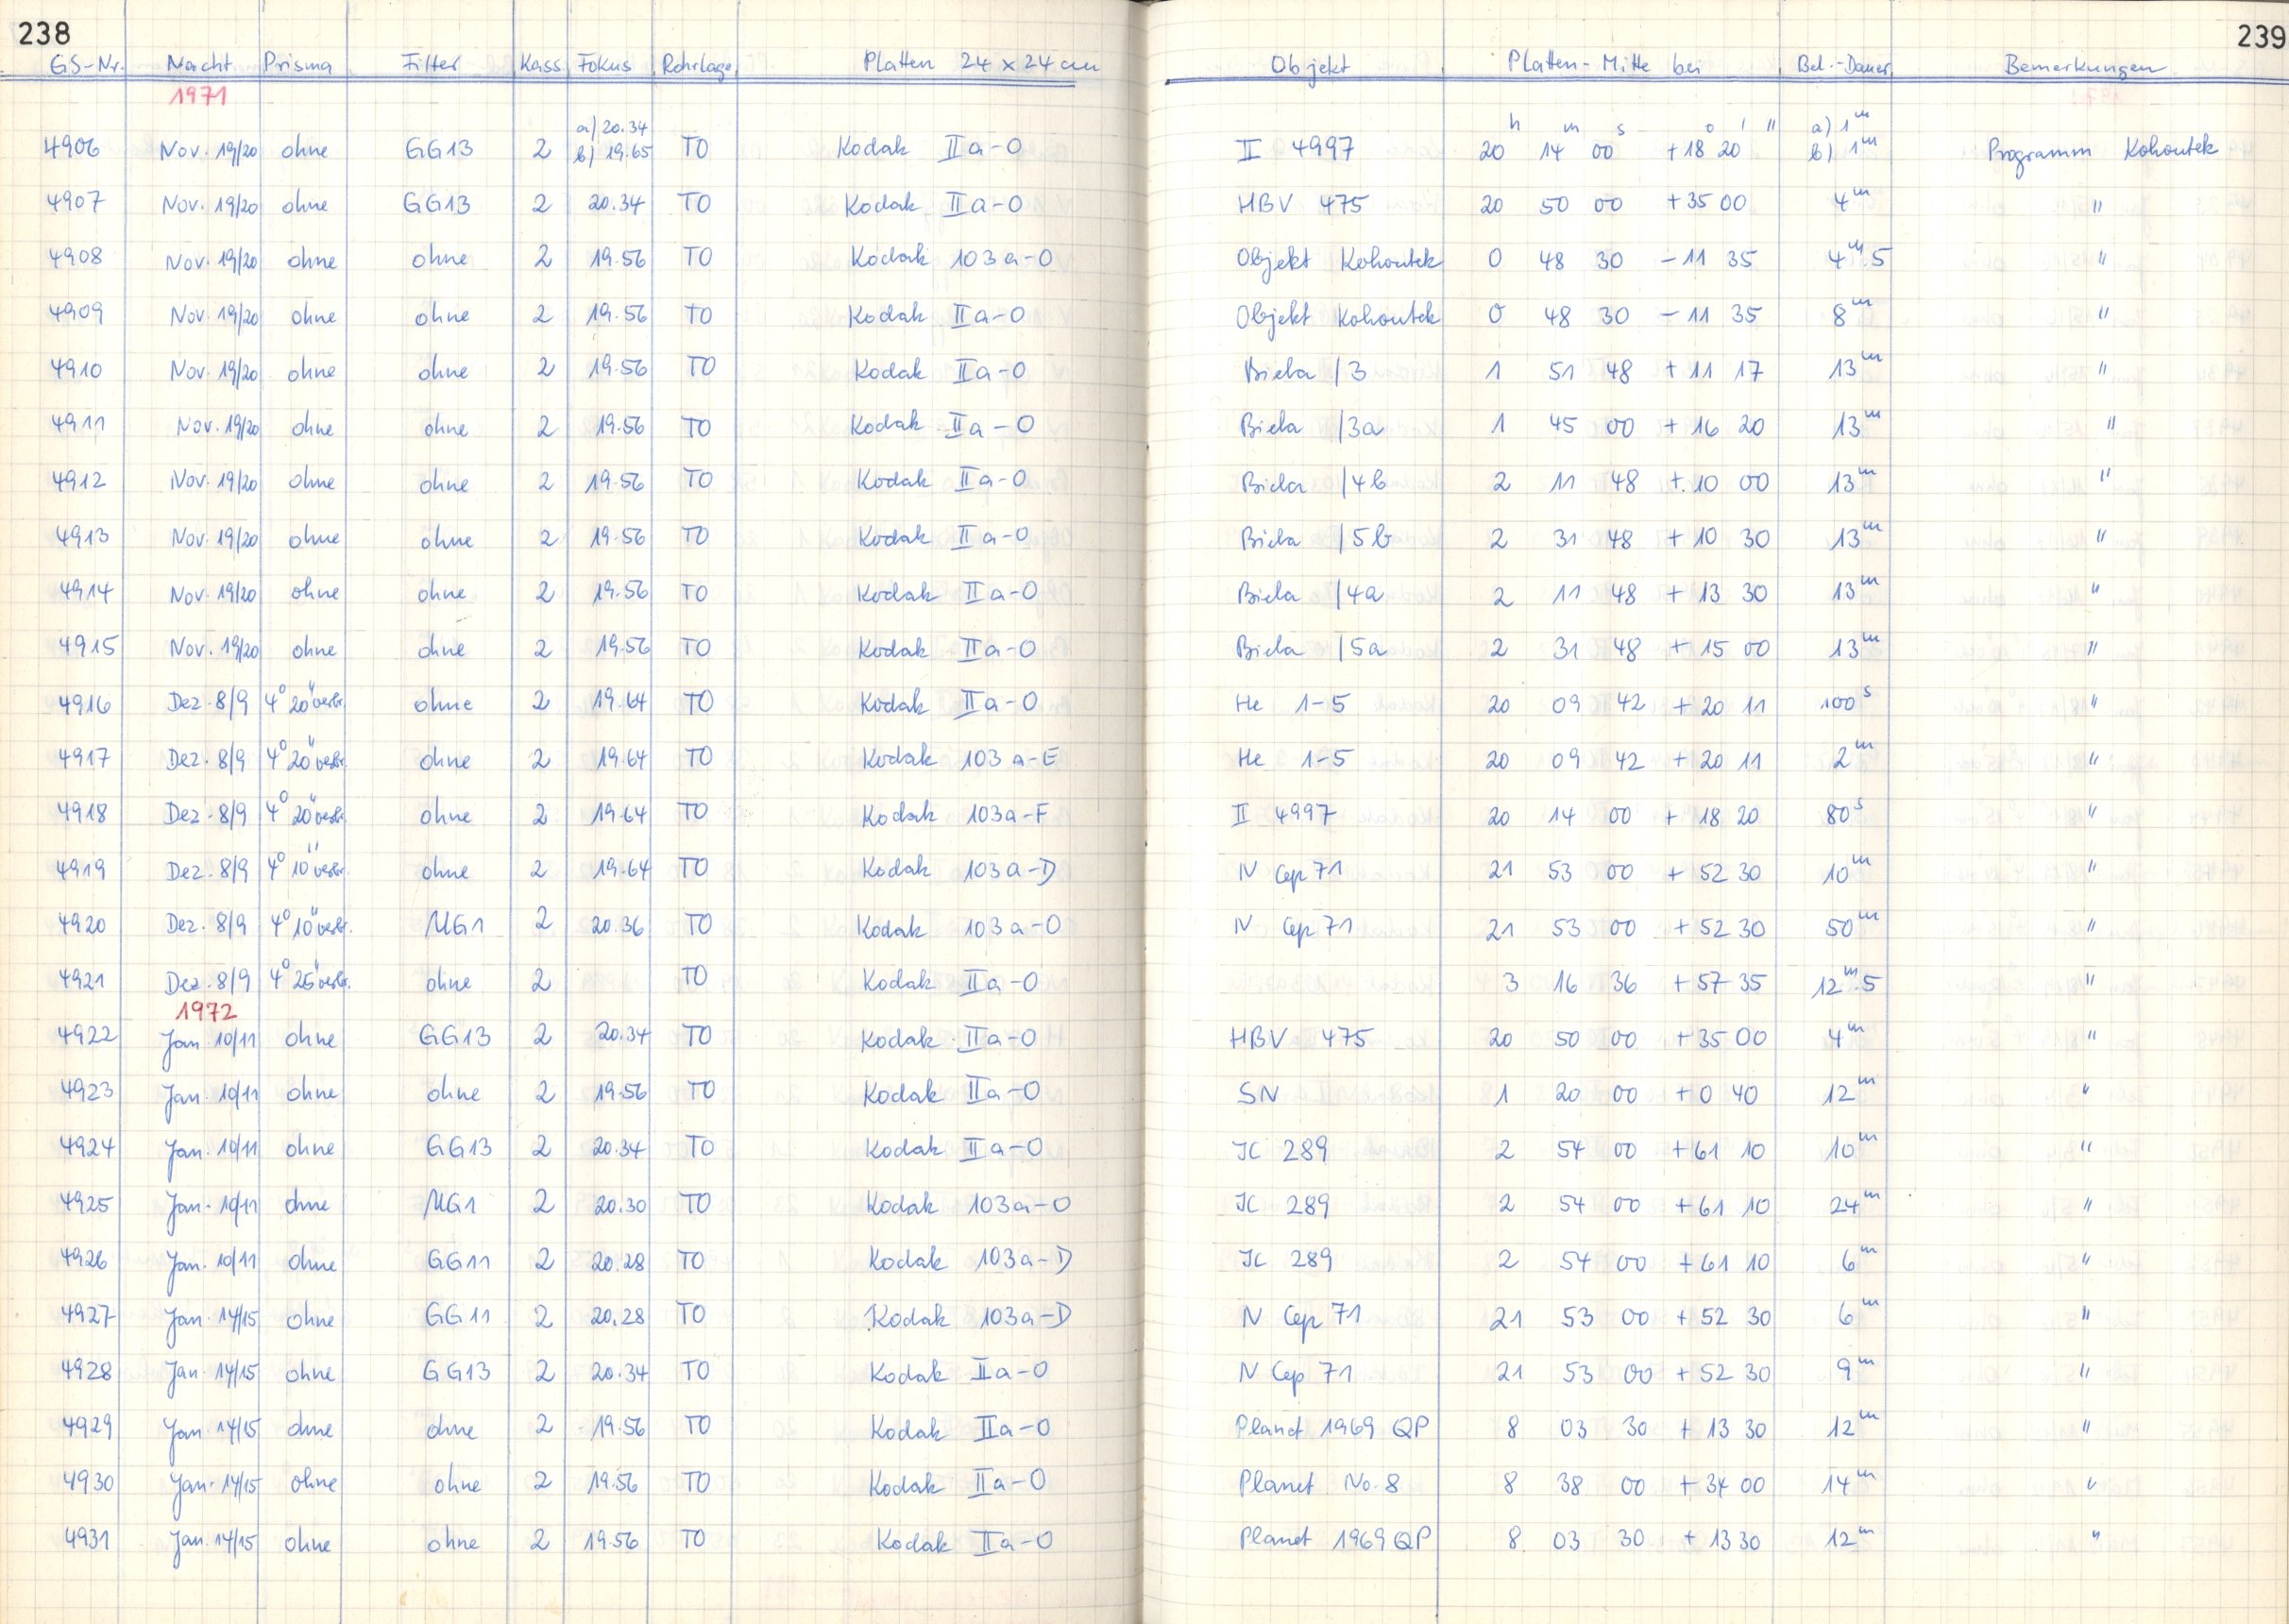 238
239
GS-Nr. Nacht Prisma Filter Kass. Fokus Rohrlage Platten 24 x 24 cm Objekt Platten-Mitte bei Bel.-Dauer Bemerkungen
1971
a) 20.34 h m s o ' " a) 1m
4906 Nov. 19/20 ohne GG13 2 b) 19.65 TO Kodak IIa-O II 4997 20 14 00 +18 20 b) 1m Programm Kohoutek
4907 Nov. 19/20 ohne GG13 2 20.34 TO Kodak IIa-O HBV 475 20 50 00 +35 00 4m "
4908 Nov. 19/20 ohne ohne 2 19.56 TO Kodak 103a-O Objekt Kohoutek 0 48 30 -11 35 4m.5 "
4909 Nov. 19/20 ohne ohne 2 19.56 TO Kodak IIa-O Objekt Kohoutek 0 48 30 -11 35 8m "
4910 Nov. 19/20 ohne ohne 2 19.56 TO Kodak IIa-O Biela /3 1 51 48 +11 17 13m "
4911 Nov. 19/20 ohne ohne 2 19.56 TO Kodak IIa-O Biela /3a 1 45 00 +16 20 13m "
4912 Nov. 19/20 ohne ohne 2 19.56 TO Kodak IIa-O Biela /4b 2 11 48 +10 00 13m "
4913 Nov. 19/20 ohne ohne 2 19.56 TO Kodak IIa-O Biela /5b 2 31 48 +10 30 13m "
4914 Nov. 19/20 ohne ohne 2 19.56 TO Kodak IIa-O Biela /4a 2 11 48 +13 30 13m "
4915 Nov. 19/20 ohne ohne 2 19.56 TO Kodak IIa-O Biela /5a 2 31 48 +15 00 13m "
4916 Dez. 8/9 4° 20" verbr. ohne 2 19.64 TO Kodak IIa-O He 1-5 20 09 42 +20 11 100s "
4917 Dez. 8/9 4° 20" verbr. ohne 2 19.64 TO Kodak 103a-E He 1-5 20 09 42 +20 11 2m "
4918 Dez. 8/9 4° 20" verbr. ohne 2 19.64 TO Kodak 103a-F II 4997 20 14 00 +18 20 80s "
4919 Dez. 8/9 4° 10" verbr. ohne 2 19.64 TO Kodak 103a-D N Cep 71 21 53 00 +52 30 10m "
4920 Dez. 8/9 4° 10" verbr. UG1 2 20.36 TO Kodak 103a-O N Cep 71 21 53 00 +52 30 50m "
4921 Dez. 8/9 4° 25" verbr. ohne 2 TO Kodak IIa-O 3 16 36 +57 35 12m.5 "
1972
4922 Jan 10/11 ohne GG13 2 20.34 TO Kodak IIa-O HBV 475 20 50 00 +35 00 4m "
4923 Jan. 10/11 ohne ohne 2 19.56 TO Kodak IIa-O SN 1 20 00 +0 40 12m "
4924 Jan. 10/11 ohne GG13 2 20.34 TO Kodak IIa-O JC 289 2 54 00 +61 10 10m "
4925 Jan. 10/11 ohne UG1 2 20.30 TO Kodak 103a-O JC 289 2 54 00 +61 10 24m "
4926 Jan. 10/11 ohne GG11 2 20.28 TO Kodak 103a-D JC 289 2 54 00 +61 10 6m "
4927 Jan. 14/15 ohne GG11 2 20.28 TO Kodak 103a-D N Cep 71 21 53 00 +52 30 6m "
4928 Jan. 14/15 ohne GG13 2 20.34 TO Kodak IIa-O N Cep 71 21 53 00 +52 30 9m "
4929 Jan 14/15 ohne ohne 2 19.56 TO Kodak IIa-O Planet 1969 QP 8 03 30 +13 30 12m "
4930 Jan. 14/15 ohne ohne 2 19.56 TO Kodak IIa-O Planet No. 8 8 38 00 +34 00 14m "
4931 Jan. 14/15 ohne ohne 2 19.56 TO Kodak IIa-O Planet 1969 QP 8 03 30 +13 30 12m "